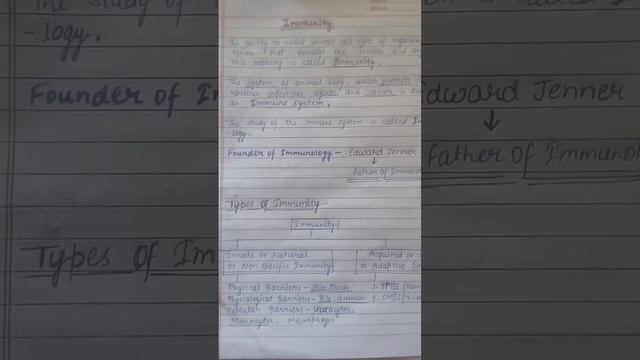 Immunity
The ability to resist almost all types of organism
toxins that damage the tissues and
This capacity is called Immunity.
The system of animal body, which protects
various infectious agents and cancer is
as Immune system.
The study of the immune system is called
-logy.
Founder of Immunology - Edward Jenner
↓
Father of Immunol
Types of Immunity -
Immunity
Innate or Natural
or Non specific Immunity
Acquired or
or Adaptive Im
Physical Barriers - Skin, Mucus
Physiological Barriers - Bile,
Cellular Barriers - Leucocytes,
Monocytes, Macrophages
1. AMIS (Hum
2. CMIS (T-